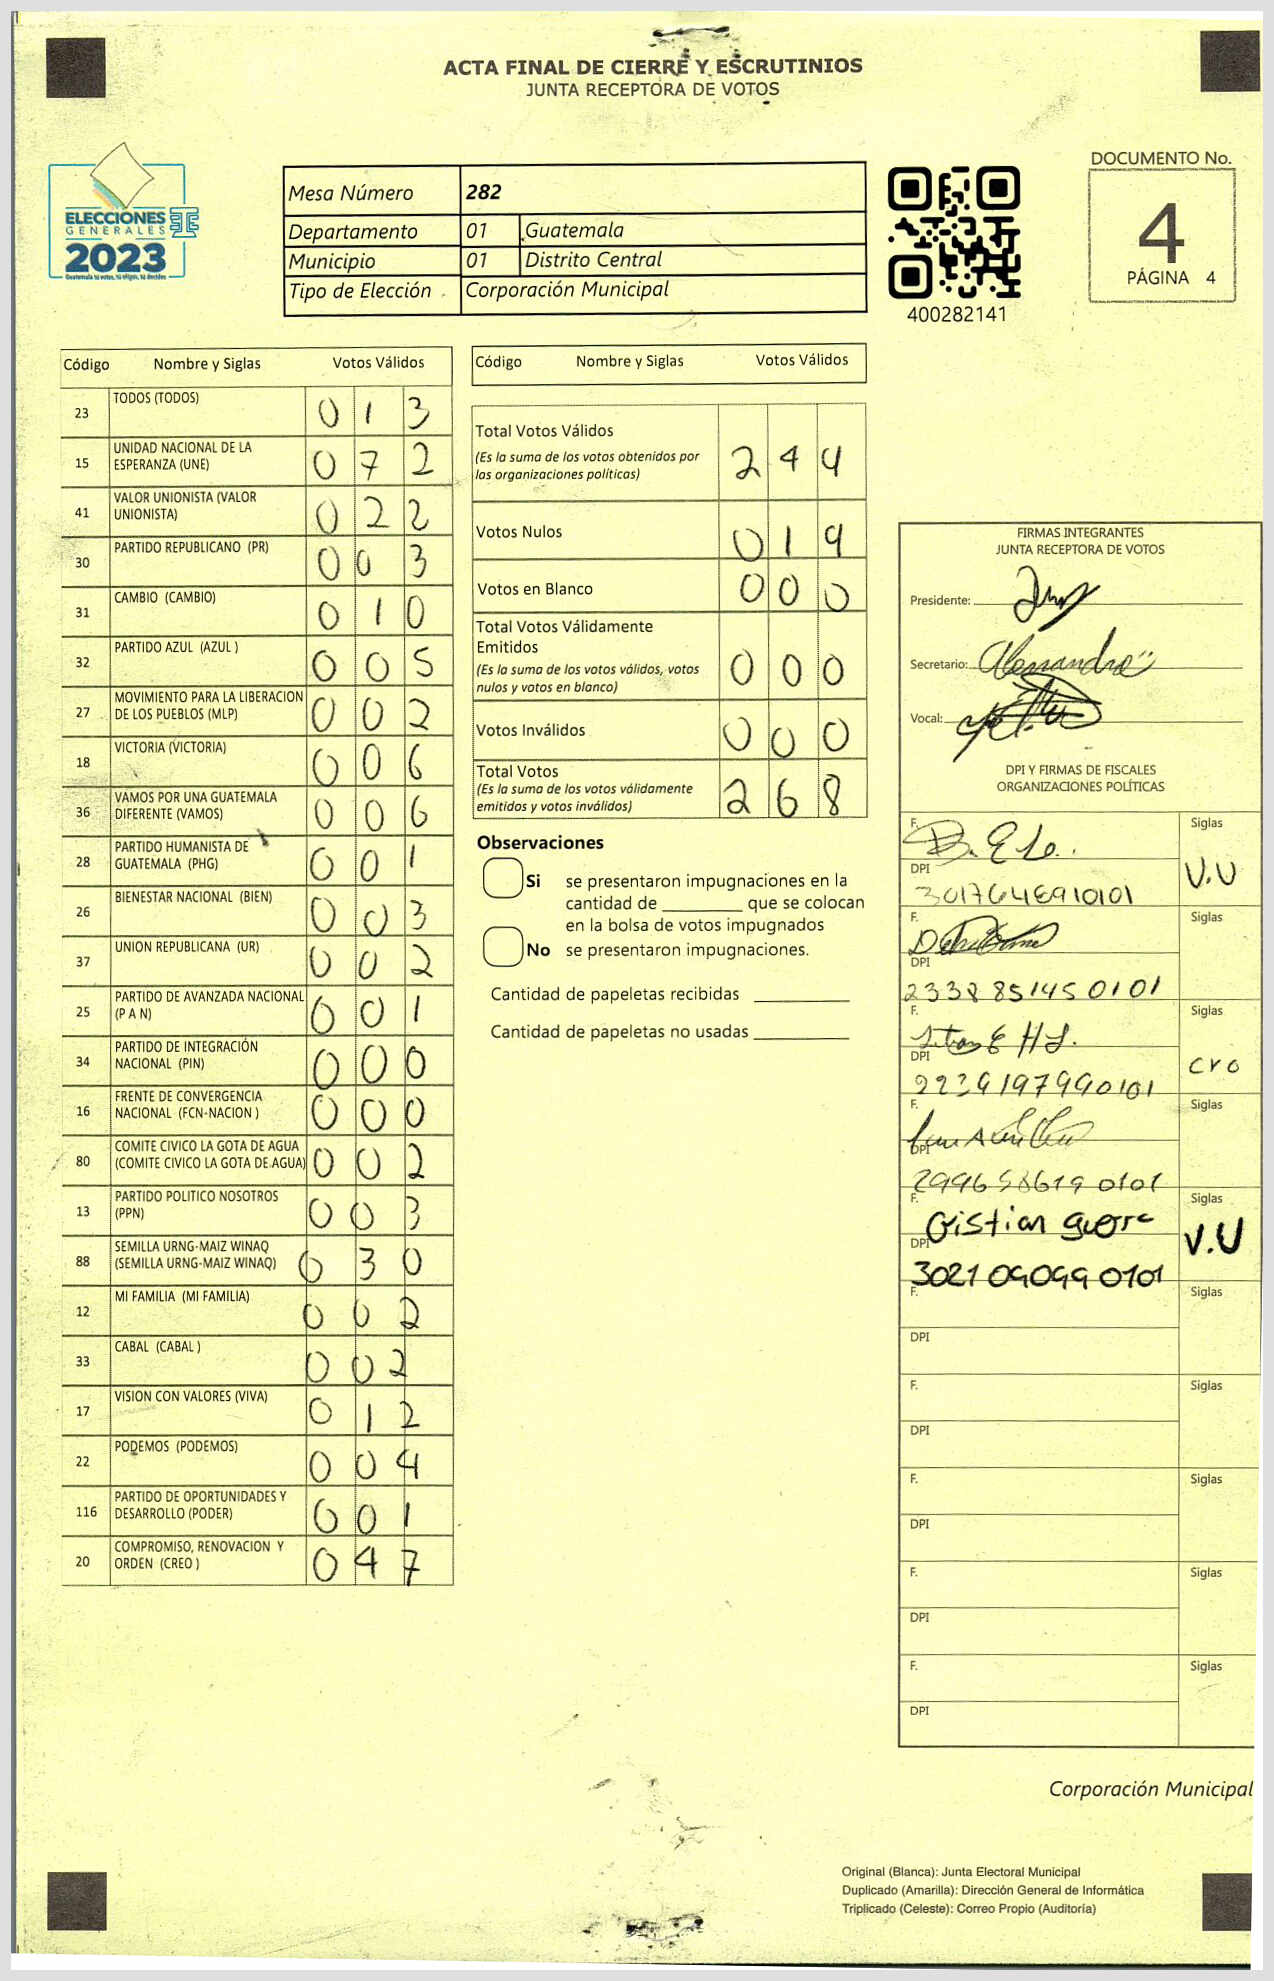 ACTA FINAL DE CIERRE Y ESCRUTINIOS
JUNTA RECEPTORA DE VOTOS
ELECCIONES
GENERALES
2023
Guatemala tú votes, tú eliges, tú decides
Mesa Número 282
Departamento 01 Guatemala
Municipio 01 Distrito Central
Tipo de Elección Corporación Municipal
400282141
DOCUMENTO No.
4
PÁGINA 4
Código Nombre y Siglas Votos Válidos
23 TODOS (TODOS) 0 1 3
15 UNIDAD NACIONAL DE LA
ESPERANZA (UNE) 0 7 2
41 VALOR UNIONISTA (VALOR
UNIONISTA) 0 2 2
30 PARTIDO REPUBLICANO (PR) 0 0 3
31 CAMBIO (CAMBIO) 0 1 0
32 PARTIDO AZUL (AZUL ) 0 0 5
27 MOVIMIENTO PARA LA LIBERACION
DE LOS PUEBLOS (MLP) 0 0 2
18 VICTORIA (VICTORIA) 0 0 6
36 VAMOS POR UNA GUATEMALA
DIFERENTE (VAMOS) 0 0 6
28 PARTIDO HUMANISTA DE
GUATEMALA (PHG) 0 0 1
26 BIENESTAR NACIONAL (BIEN) 0 0 3
37 UNION REPUBLICANA (UR) 0 0 2
25 PARTIDO DE AVANZADA NACIONAL
(P A N) 0 0 1
34 PARTIDO DE INTEGRACIÓN
NACIONAL (PIN) 0 0 0
16 FRENTE DE CONVERGENCIA
NACIONAL (FCN-NACION ) 0 0 0
80 COMITE CIVICO LA GOTA DE AGUA
(COMITE CIVICO LA GOTA DE AGUA) 0 0 2
13 PARTIDO POLITICO NOSOTROS
(PPN) 0 0 3
88 SEMILLA URNG-MAIZ WINAQ
(SEMILLA URNG-MAIZ WINAQ) 0 3 0
12 MI FAMILIA (MI FAMILIA) 0 0 2
33 CABAL (CABAL ) 0 0 2
17 VISION CON VALORES (VIVA) 0 1 2
22 PODEMOS (PODEMOS) 0 0 4
116 PARTIDO DE OPORTUNIDADES Y
DESARROLLO (PODER) 0 0 1
20 COMPROMISO, RENOVACION Y
ORDEN (CREO ) 0 4 7
Código Nombre y Siglas Votos Válidos
Total Votos Válidos
(Es la suma de los votos obtenidos por
las organizaciones políticas) 2 4 4
Votos Nulos 0 1 9
Votos en Blanco 0 0 0
Total Votos Válidamente
Emitidos
(Es la suma de los votos válidos, votos
nulos y votos en blanco) 0 0 0
Votos Inválidos 0 0 0
Total Votos
(Es la suma de los votos válidamente
emitidos y votos inválidos) 2 6 8
Observaciones
Si se presentaron impugnaciones en la
cantidad de ________ que se colocan
en la bolsa de votos impugnados
No se presentaron impugnaciones.
Cantidad de papeletas recibidas __________
Cantidad de papeletas no usadas __________
FIRMAS INTEGRANTES
JUNTA RECEPTORA DE VOTOS
Presidente:
Secretario: Alessandra
Vocal:
DPI Y FIRMAS DE FISCALES
ORGANIZACIONES POLÍTICAS
F. Siglas
DPI V.U
F. Siglas
DPI
2338 85145 0101
F. Siglas
DPI cro
2239197990101
F. Siglas
DPI
F. Cristian guerra Siglas
DPI V.U
3021 09099 0101
F. Siglas
DPI
F. Siglas
DPI
F. Siglas
DPI
F. Siglas
DPI
F. Siglas
DPI
Corporación Municipal
Original (Blanca): Junta Electoral Municipal
Duplicado (Amarilla): Dirección General de Informática
Triplicado (Celeste): Correo Propio (Auditoría)